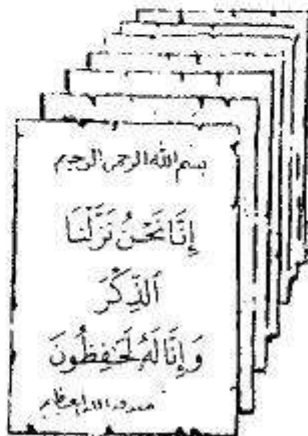 بسم الله الرحمن الرحيم
إِنَّا نَحْنُ نَزَّلْنَا
الذِّكْرَ
وَإِنَّا لَهُ لَحَفِظُونَ
صدق الله العظيم